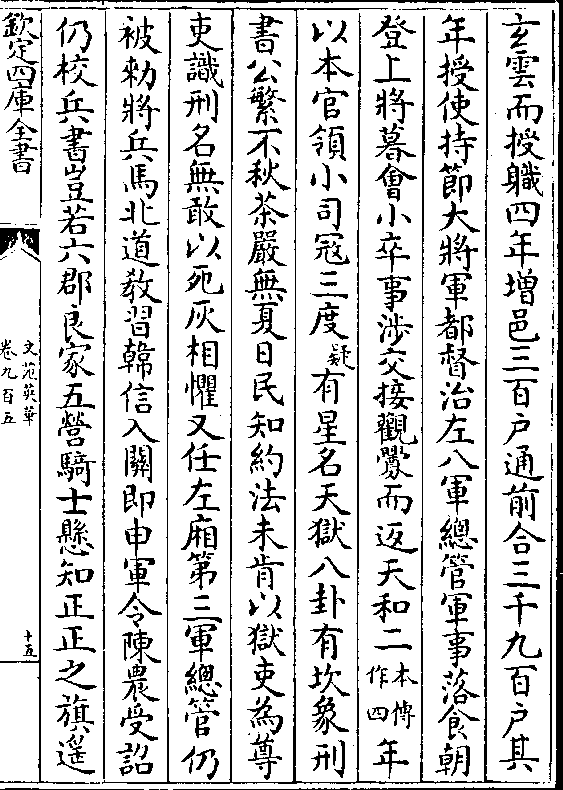 玄雲而授職四年增邑三百户通前合三千九百户其
年授使持節大將軍都督治左八軍總管軍事落食朝
登上將暮㑹小卒事涉交接觀釁而返天和二本傳作四年
以本官領小司冦三度疑有星名天獄八卦有坎象刑
書公繁不秋茶嚴無夏日民知約法未肯以獄吏為尊
吏識刑名無敢以死灰相懼又任左廂第三軍總管仍
被勅將兵馬北道敎習韓信入關即申軍令陳農受詔
仍校兵書豈若六郡良家五營騎士懸知正正之旗遥
欽定四庫全書
文苑英華
卷九百五
十五